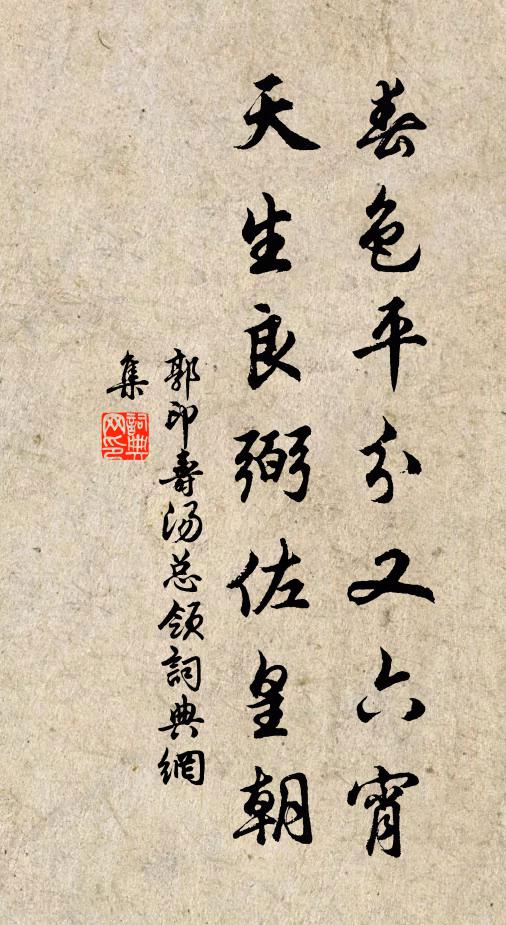 春色平分又六宵
天生良弼佐皇朝
郭印寿汤总领詞典網
集
詞典
网印